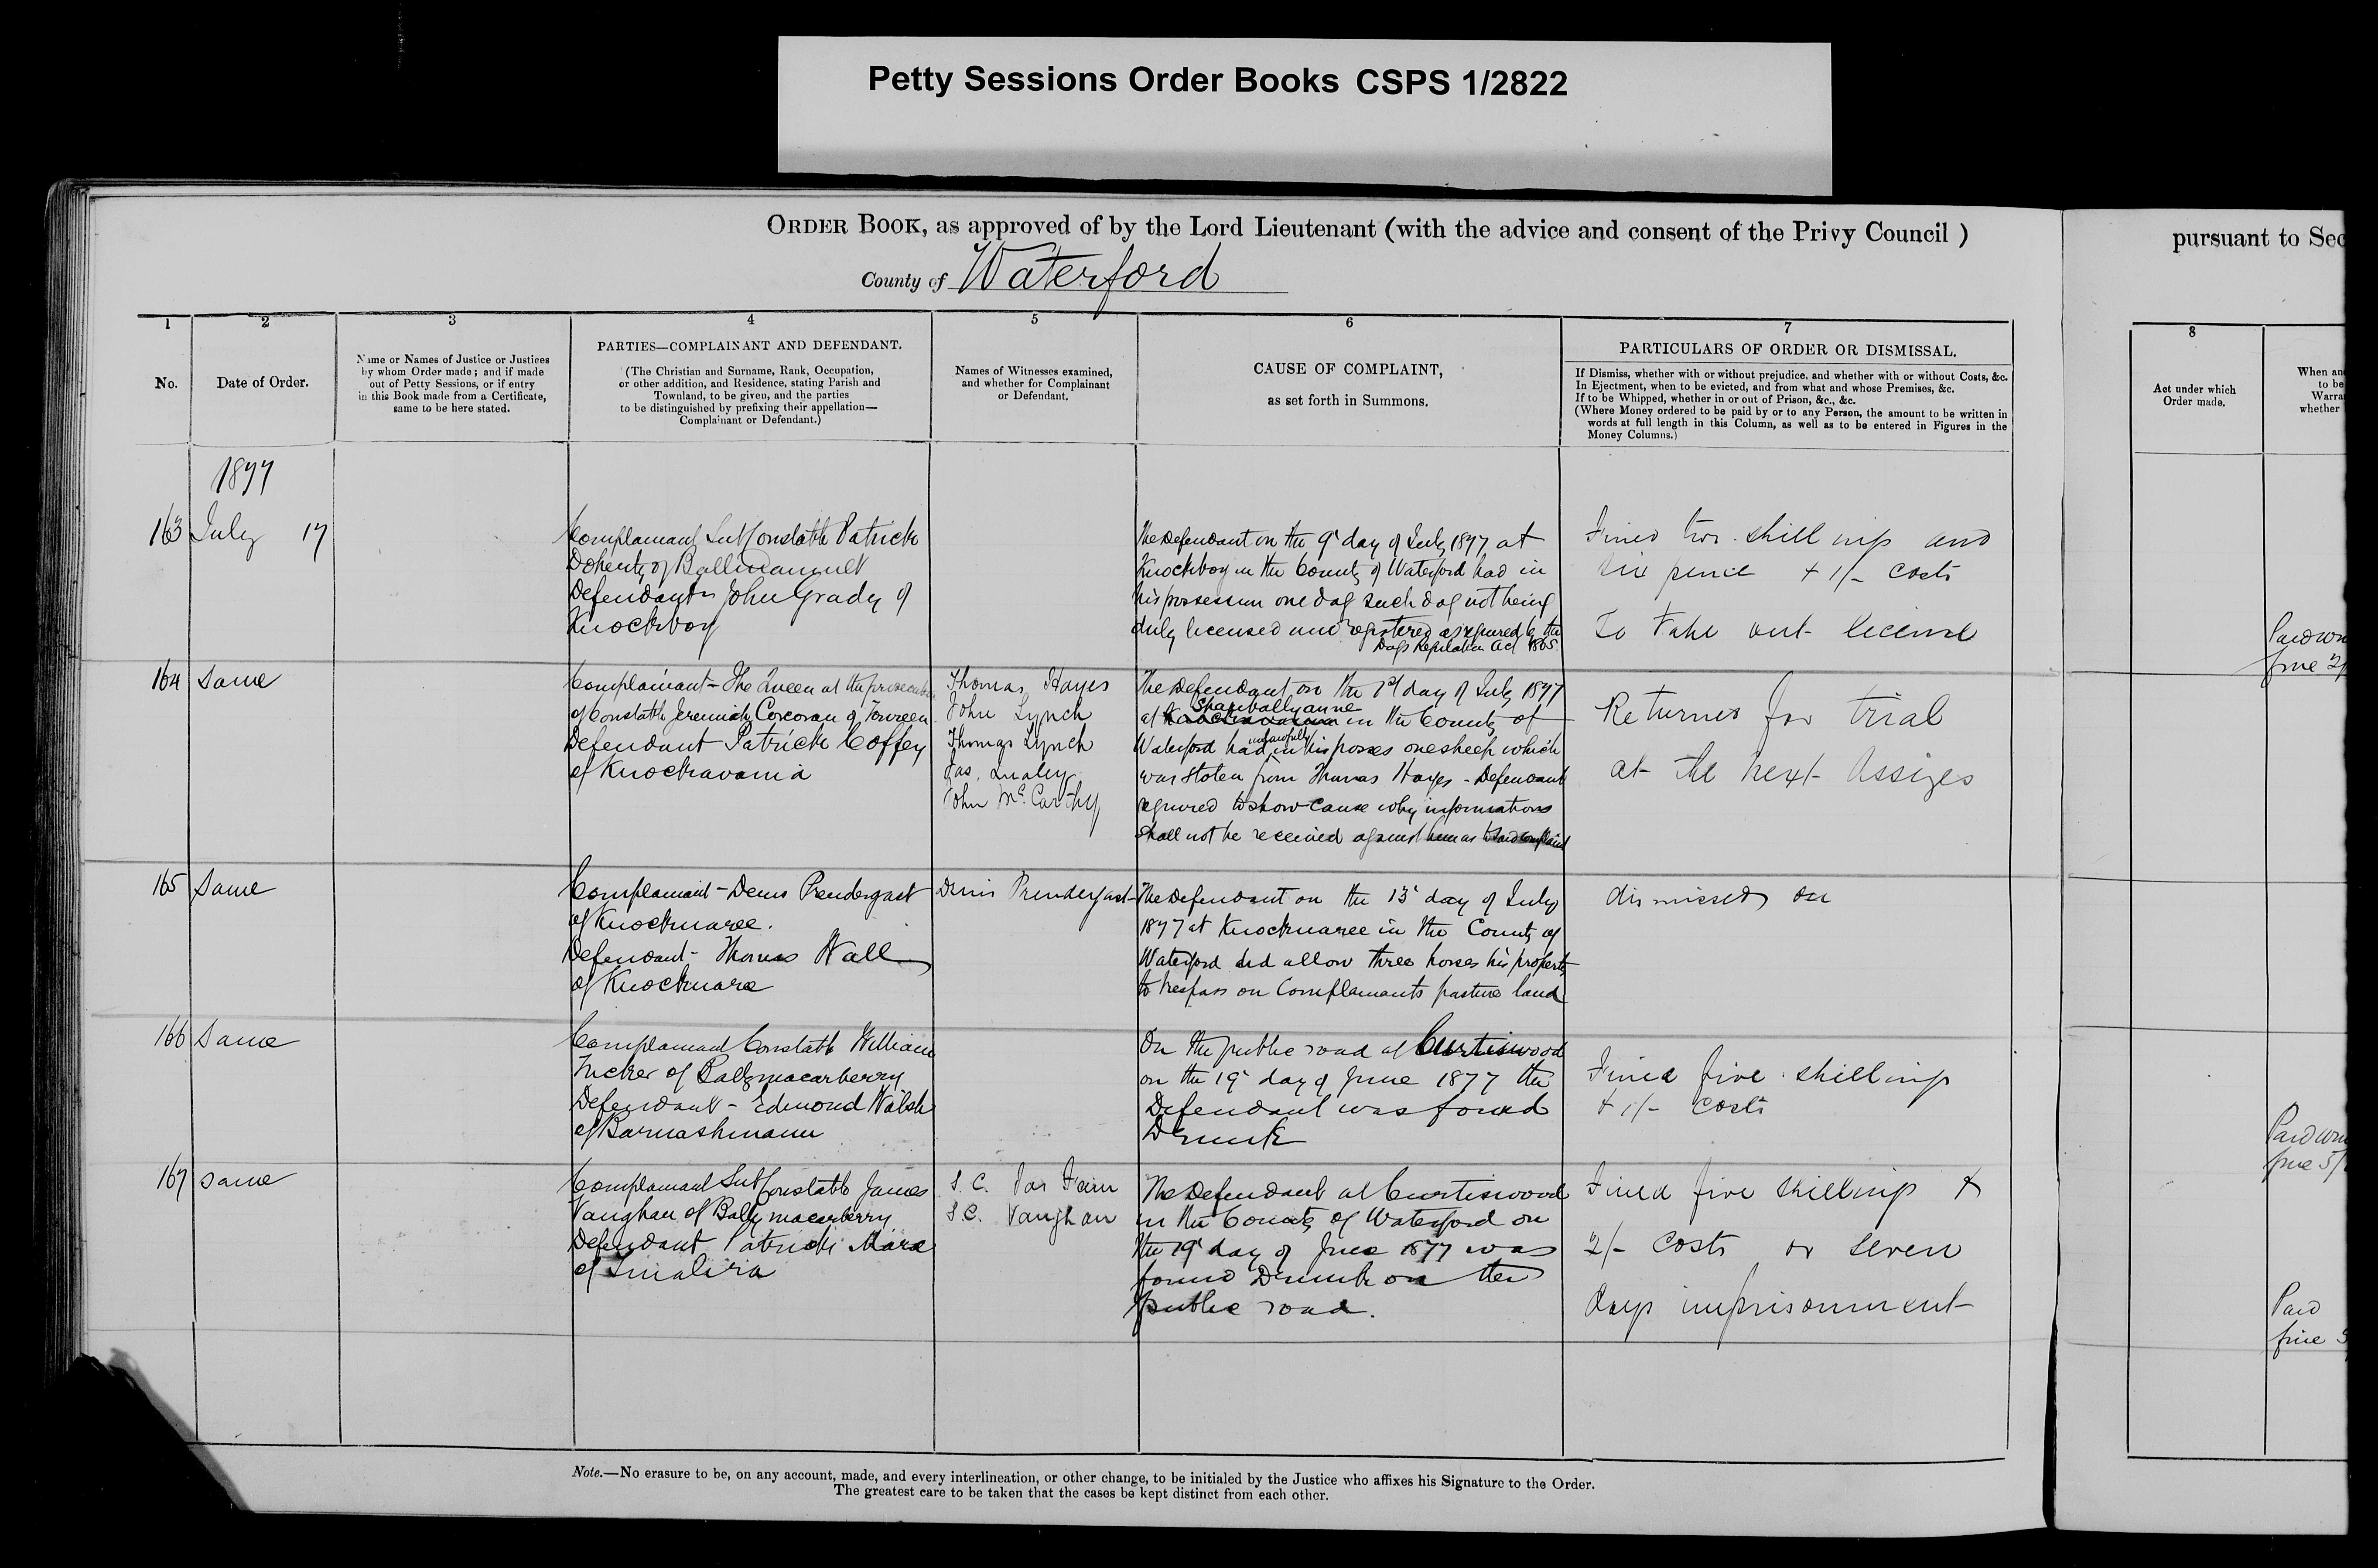 Petty Sessions Order Books CSPS 1/2822
ORDER BOOK, as approved of by the Lord Lieutenant (with the advice and consent of the Privy Council )
pursuant to Sec
County of Waterford
1
2
3
4
5
6
7
8
No.
Date of Order.
Name or Names of Justice or Justices
by whom Order made; and if made
out of Petty Sessions, or if entry
in this Book made from a Certificate,
same to be here stated.
PARTIES—COMPLAINANT AND DEFENDANT.
(The Christian and Surname, Rank, Occupation,
or other addition, and Residence, stating Parish and
Townland, to be given, and the parties
to be distinguished by prefixing their appellation—
Complainant or Defendant.)
Names of Witnesses examined,
and whether for Complainant
or Defendant.
CAUSE OF COMPLAINT,
as set forth in Summons.
PARTICULARS OF ORDER OR DISMISSAL.
If Dismiss, whether with or without prejudice, and whether with or without Costs, &c.
In Ejectment, when to be evicted, and from what and whose Premises, &c.
If to be Whipped, whether in or out of Prison, &c., &c.
(Where Money ordered to be paid by or to any Person, the amount to be written in
words at full length in this Column, as well as to be entered in Figures in the
Money Columns.)
Act under which
Order made.
When an
to be
Warra
whether
1877
163 July 17
Complainant Sub Constable Patrick
Doherty of Ballinamult
Defendant John Grady of
Knockboy
The Defendant on the 9 day of July 1877 at
Knockboy in the County of Waterford had in
his possession one dog such dog not being
duly licensed and registered as required by the
Dogs Regulation Act 1865
Fined two shillings and
six pence + 1/- costs
To take out license
Paid
fine 2/
164 same
Complainant - The Queen at the prosecution
of Constable Jeremiah Corcoran of Toureen
Defendant Patrick Coffey
of Knockavania
Thomas Hayes
John Lynch
Thomas Lynch
Jas.
John McCarthy
The Defendant on the day of July 1877
at Shanballyanne in the County of
Waterford had unlawfully in his posses one sheep which
was stolen from Thomas Hayes - Defendant
required to show cause why informations
shall not be received against him as to said complaint
Returned for trial
at the next Assizes
165 same
Complainant - Denis Prendergast
of Knocknaree.
Defendant - Thomas Wall
of Knocknaree
Denis Prendergast
The Defendant on the 13 day of July
1877 at Knocknaree in the County of
Waterford did allow three horses his property
to trespass on Complainants pasture land
dismissed
166 same
Complainant Constable William
Tucker of Ballymacarberry
Defendant - Edmond Walsh
of
On the public road at Curtiswood
on the 19 day of June 1877 the
Defendant was found
Drunk
Fined five shillings
+ 1/- costs
Paid
fine 5/
167 same
Complainant Sub Constable James
Vaughan of Ballymacarberry
Defendant Patrick Mara
of
S.C. Jas
S.C. Vaughan
The Defendant at Curtiswood
in the County of Waterford on
the 19 day of June 1877 was
found Drunk on the
public road.
Fined five shillings &
2/- costs or seven
days imprisonment
Paid
fine 5
Note.—No erasure to be, on any account, made, and every interlineation, or other change, to be initialed by the Justice who affixes his Signature to the Order.
The greatest care to be taken that the cases be kept distinct from each other.